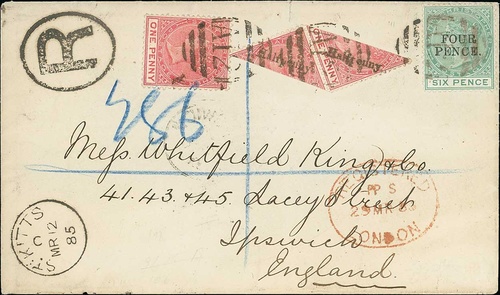 R
ONE PENNY
A12
Half-penny
ONE PENNY
Half-penny
FOUR
PENCE.
SIX PENCE
286
Mess. Whitfield King & Co.
41. 43. & 45 Lacey Street
Ipswich
England.
REGISTERED
29 MR 85
LONDON
ST. KITTS
C
MR 12
85